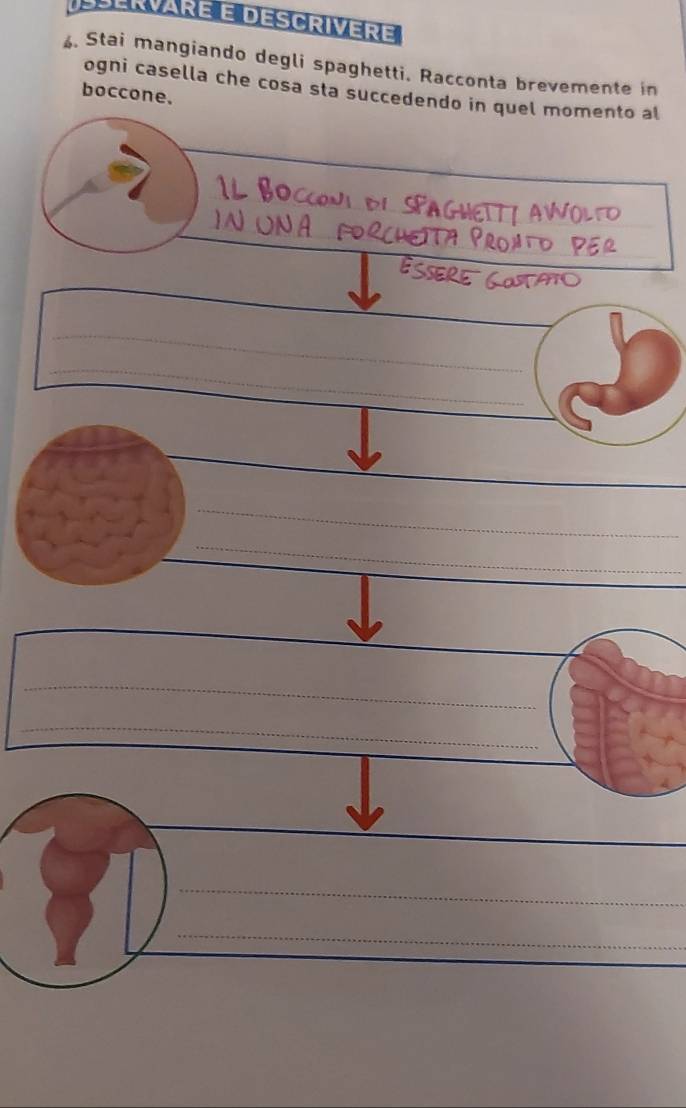 OSSERVARE E DESCRIVERE
6. Stai mangiando degli spaghetti. Racconta brevemente in
ogni casella che cosa sta succedendo in quel momento al
boccone.
IL BOCCONI DI SPAGHETTI AVVOLTO
IN UNA FORCHETTA PRONTO PER
ESSERE GOSTATO